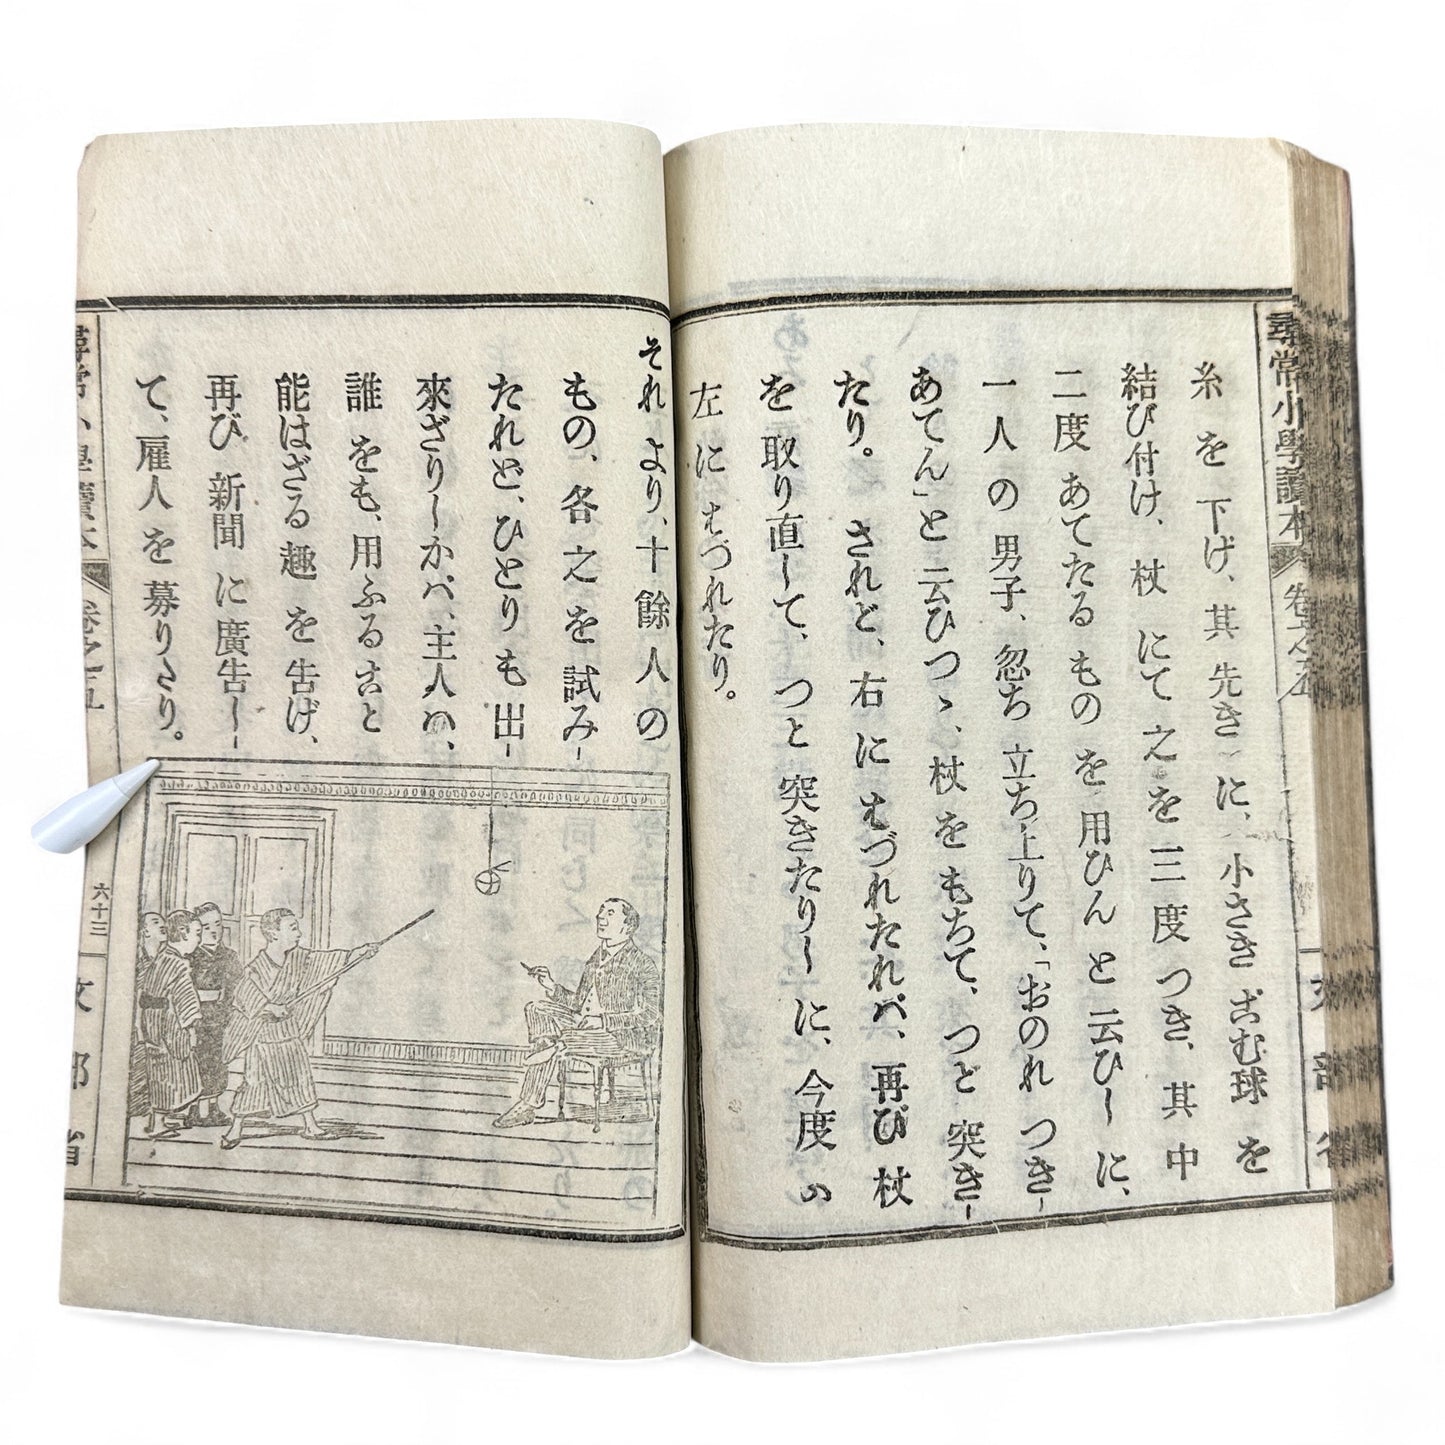 尋常小學讀本
卷之五
文部省
糸を下げ、其先きに、小さきゴム球を
結び付け、杖にて之を三度つき、其中
二度あてたるものを用ひんと云ひしに、
一人の男子、忽ち立ち上りて、「おのれつき
あてん」と云ひつゝ、杖をもちて、つと突き
たり。されど、右にはづれたれバ、再び杖
を取り直して、つと突きたりしに、今度ハ
左にはづれたり。
それより、十餘人の
もの、各之を試み
たれど、ひとりも出
來ざりしかバ、主人ハ、
誰をも、用ふること
能はざる趣を告げ、
再び新聞に廣告し
て、雇人を募りたり。
尋常小學讀本
卷之五
六十三
文部省